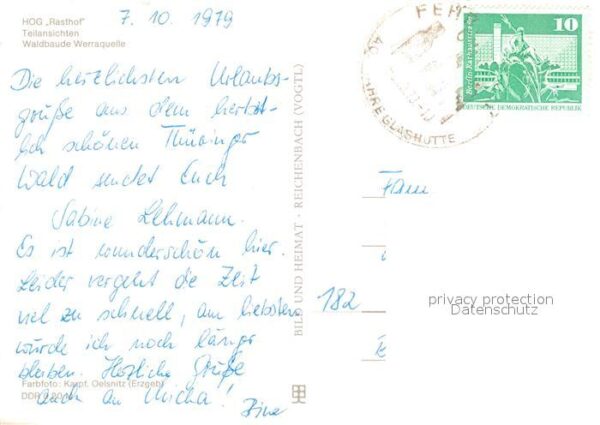 HOG „Rasthof"
Teilansichten
Waldbaude Werraquelle
7. 10. 1979
Die herzlichsten Urlaubs-
grüße aus dem herbst-
lich schönen Thüringer
Wald sendet Euch
Sabine Lehmann.
Es ist wunderschön hier.
Leider vergeht die Zeit
viel zu schnell, am liebsten
würde ich noch länger
bleiben. Herzliche Grüße
auch an Micha!
Farbfoto: Kaupf, Oelsnitz (Erzgeb)
DDR 0,20 M
BILD UND HEIMAT · REICHENBACH (VOGTL)
FEH
JAHRE GLASHÜTTE
10
Berlin, Rathausstraße
DEUTSCHE DEMOKRATISCHE REPUBLIK
Fam
182
privacy protection
Datenschutz